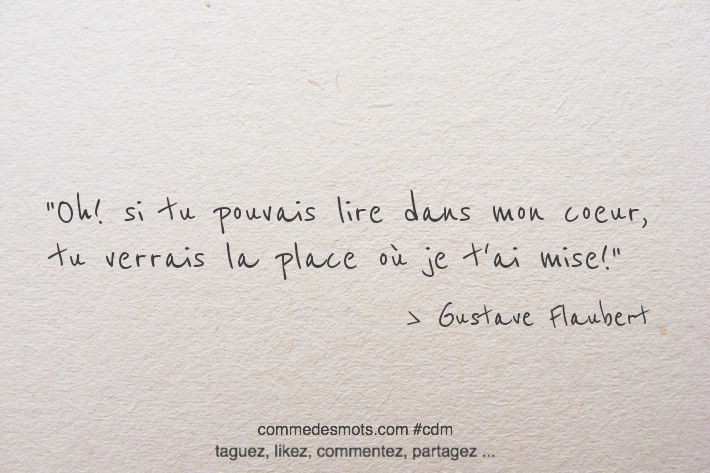 "Oh! si tu pouvais lire dans mon coeur,
tu verrais la place où je t'ai mise!"
> Gustave Flaubert
commedesmots.com #cdm
taguez, likez, commentez, partagez ...